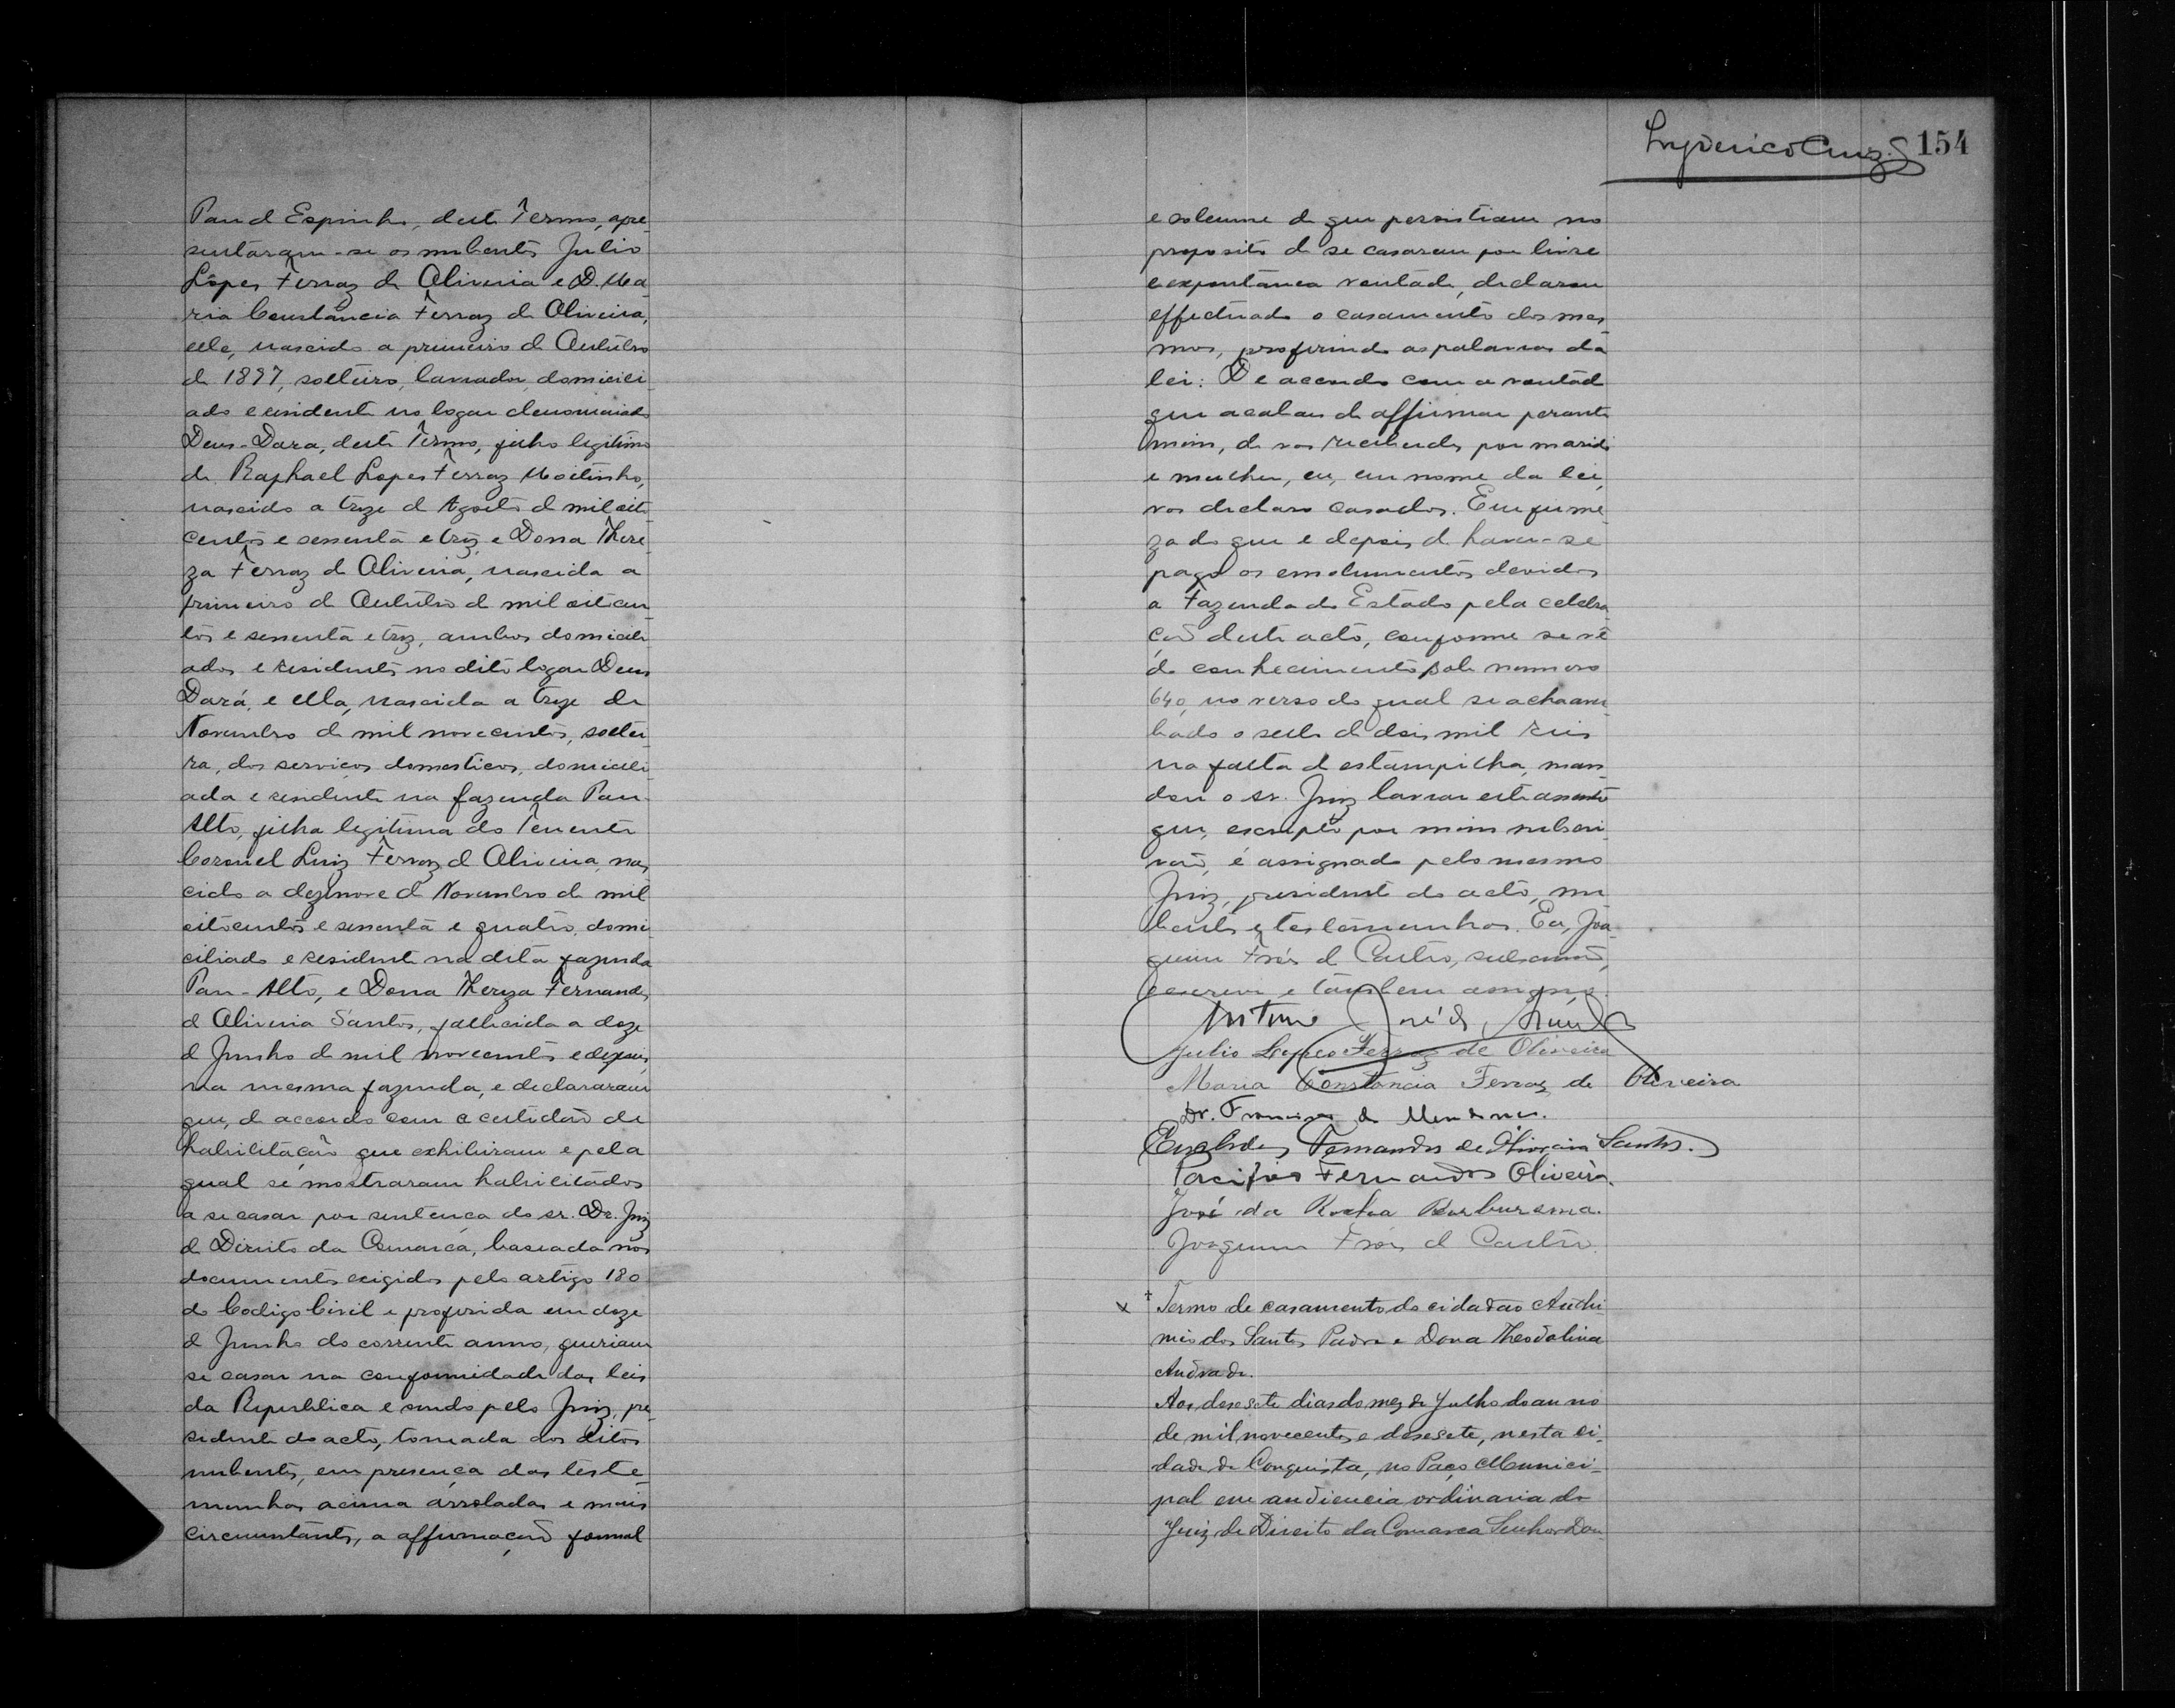 Pau d Espinho, deste Termo, apre-
sentaram-se os nubentes Julio
Lopes Ferraz de Oliveira e D. Ma-
ria Constancia Ferraz de Oliveira,
elle, nascido a primeiro de Outubro
de 1897, solteiro, lavrador, domicili-
ado e residente no logar denominado
Deus-Dara, deste Termo, filho legitimo
de Raphael Lopes Ferraz Moitinho,
nascido a treze d Agosto d mil oito
centos e sessenta e trez, e Dona There-
za Ferraz d Oliveira, nascida a
primeiro d Outubro d mil oitocen-
tos e sessenta e trez, ambos domicili-
ados e residentes no dito logar Deus
Dará, e ella, nascida a treze de
Novembro de mil novecentos, soltei-
ra, dos serviços domesticos, domicili-
ada e residente na fazenda Pau-
Alto, filha legitima do Tenente
Coronel Luiz Ferraz d Oliveira, nas-
cido a dezenove d Novembro de mil
oitocentos e sessenta e quatro, domi-
ciliado e residente na dita fazenda
Pau-Alto, e Dona Thereza Fernandes
d Oliveira Santos, fallecida a doze
d Junho de mil novecentos e dezeseis,
na mesma fazenda, e declararam
que, de accordo com a certidão de
habilitação que exhibiram e pela
qual se mostraram habilitados
a se casar por sentença do sr. Dr. Juiz
d Direito da Comarca, baseada nos
documentos exigidos pelo artigo 180
do Codigo Civil e proferida em doze
d Junho do corrente anno, queriam
se casar na conformidade das leis
da Republica e sendo pelo Juiz, pre-
sidente do acto, tomada dos ditos
nubentes, em presença das teste-
munhas acima arroladas e mais
circumstantes, a affirmação formal
Lyderico Cruz. 154
e solemne de que persistiam no
proposito de se casarem por livre
e expontanea vontade, declarou
effectuado o casamento dos mes-
mos, proferindo as palavras da
lei: De accordo com a vontade
que acabaes de affirmar perante
mim, de vos receberdes por marido
e mulher, eu, em nome da lei,
vos declaro casados. Em firme-
za do que e depois d haver-se
pago os emolumentos devidos
a Fazenda do Estado pela celebra-
ção deste acto, conforme se vê
do conhecimento sob numero
640, no verso do qual se acha aver-
bado o sello d dois mil reis
na falta d estampilha, man-
dou o sr. Juiz lavrar este assento
que, escripto por mim subscri-
vão, é assignado pelo mesmo
Juiz, presidente do acto, nu-
bentes e testemunhas. Eu, Joa-
quim Fróes d Castro, escrivão,
escrevi e tambem assigno.
Antonio José de
Julio Lopes Ferraz de Oliveira
Maria Constancia Ferraz de Oliveira
Dr. Francisco de
Fernandes de Oliveira Santos.
Pacifico Fernandes Oliveira.
José da Rocha
Joaquim Fróes d Castro.
x Termo de casamento do cidadão Anthi-
mio dos Santos e Dona Theodolina
Andrade.
Aos desesete dias do mez de Julho do anno
de mil novecentos e desesete, nesta ci-
dade de Conquista, no Paço Munici-
pal em audiencia ordinaria do
Juiz de Direito da Comarca Senhor Dou-